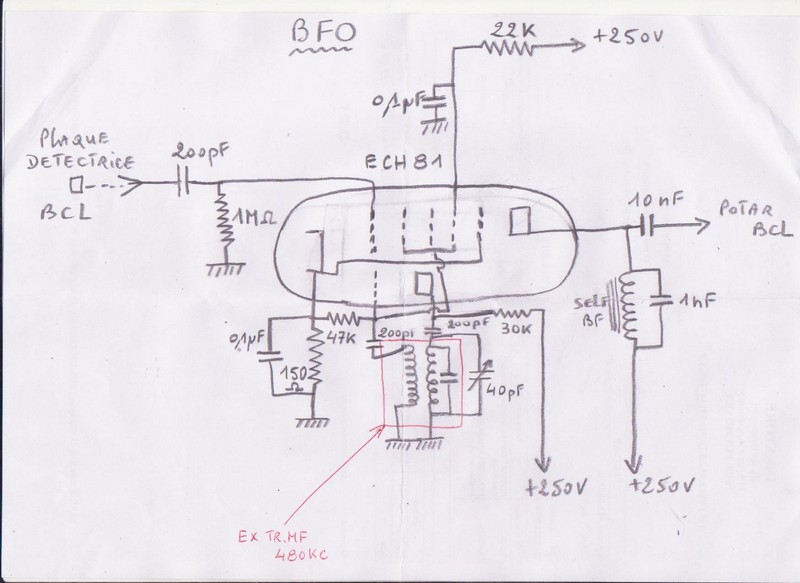 BFO
22K
+250V
0,1µF
PLAQUE
DETECTRICE
BCL
200pF
ECH81
1MΩ
10nF
POTAR
BCL
SELF
BF
1nF
0,1µF
47K
200pF
200pF
30K
150
Ω
40pF
+250V
+250V
EX TR.MF
480KC